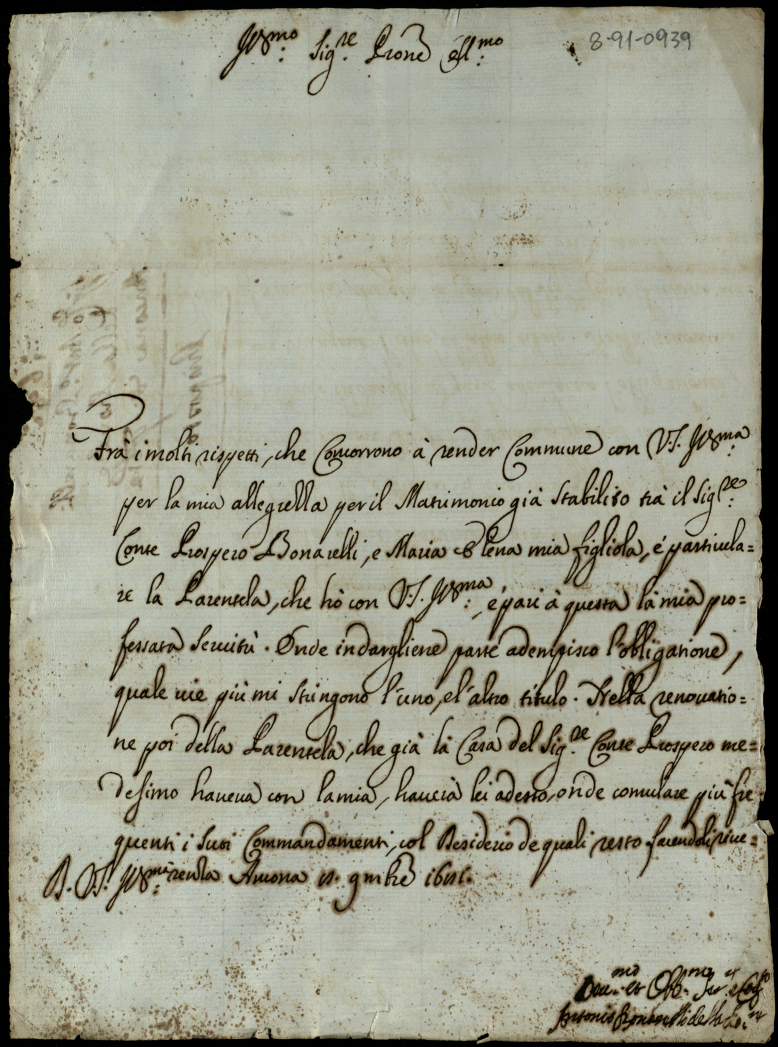 Ill.mo Sig.re Prone Oss.mo
8-91-0939
Frà i molti rispetti, che Concorrono à render Commune con V.S. Ill.ma
per la mia allegrezza per il Matrimonio già Stabilito trà il Sig.re
Conte Prospero Bonarelli, e Maria Elena mia figliola, é particula=
re la Parentela, che hò con V.S. Ill.ma, é pari à questa la mia pro=
fessata Servitù. Onde in dargliene parte adempisco l'obbligatione,
quale vie più mi Stringono l'uno, e l'altro titulo. Nella renovatio=
ne poi della Parentela, che già la Casa del Sig.re Conte Prospero me=
desimo haveva con la mia, haverà lei adesso, onde comulare più fre=
quenti i Suoi Commandamenti, col Desiderio de quali resto facendoli rive=
renza Ancona 9mbre
B. V.S. Ill.ma
et Obb.mo
Antonio Bonarelli della